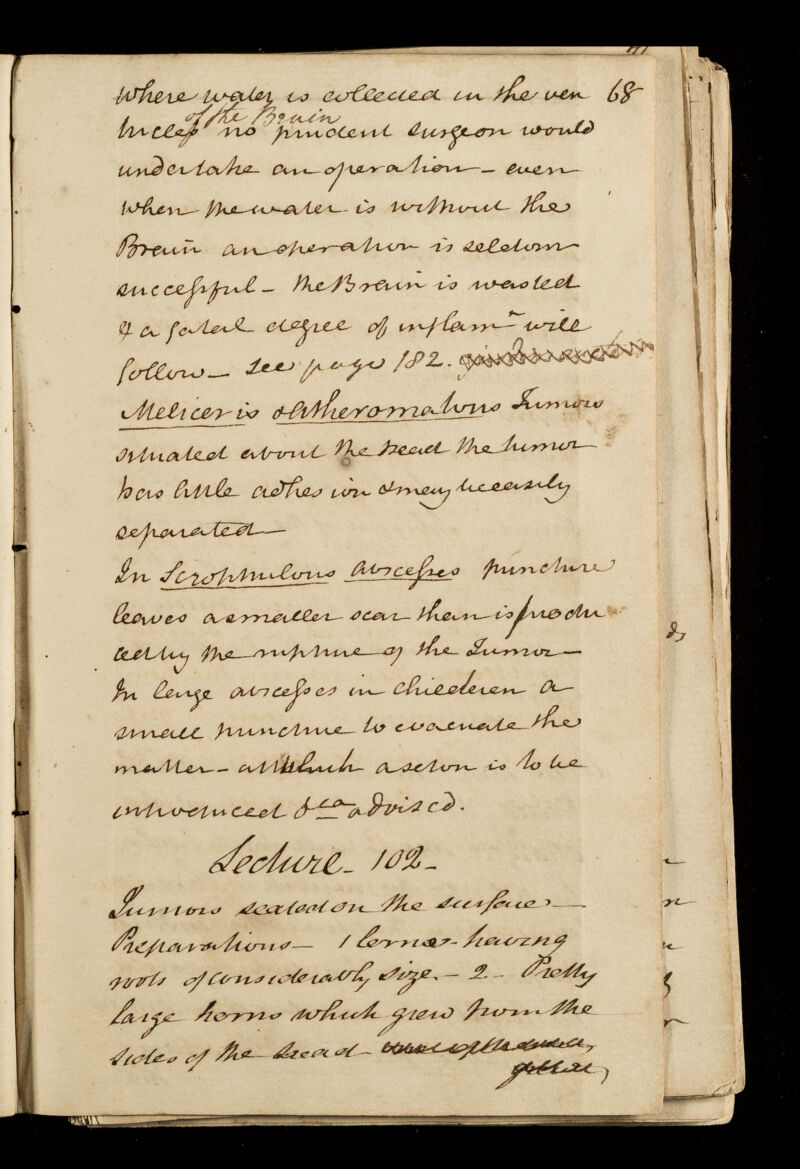 where water is collected in the ven 68
of the Brain
tricles no prudent surgeon would
undertake an operation - even
when the water is without the
Brain an operation is seldom
successful - the Brain is wasted
& a fatal degree of inflamn will
follow - see page 182.
Meliceris & Atheromatous Tumors
situated about the head the tumor
has little adhesion & may be easily
separated
In Scrophulous abscesses puncture
leaves a smaller scar than is produ
ced by the rupture of the Tumor -
In large abscesses in children a
small puncture to evacuate the
matter - at which a seton is to be
introduced &ca advised.
Lecture - 102 -
Tumors seated on the surface -
Preparations - 1 having
roots of considerably size. - 2 - Pretty
large horns which grew from the
sides of the head
ds